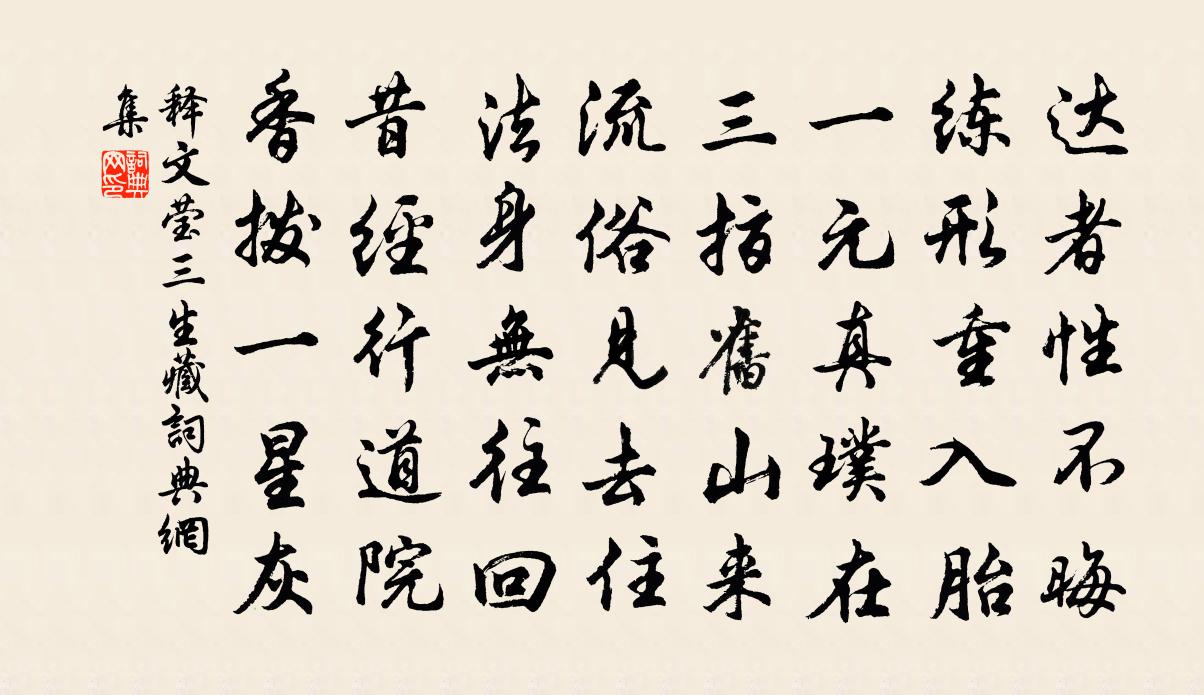 达者性不晦
练形重入胎
一元真璞在
三指舊山来
流俗見去住
法身無往回
昔經行道院
香拨一星灰
释文莹三生藏詞典網
集
詞典网印